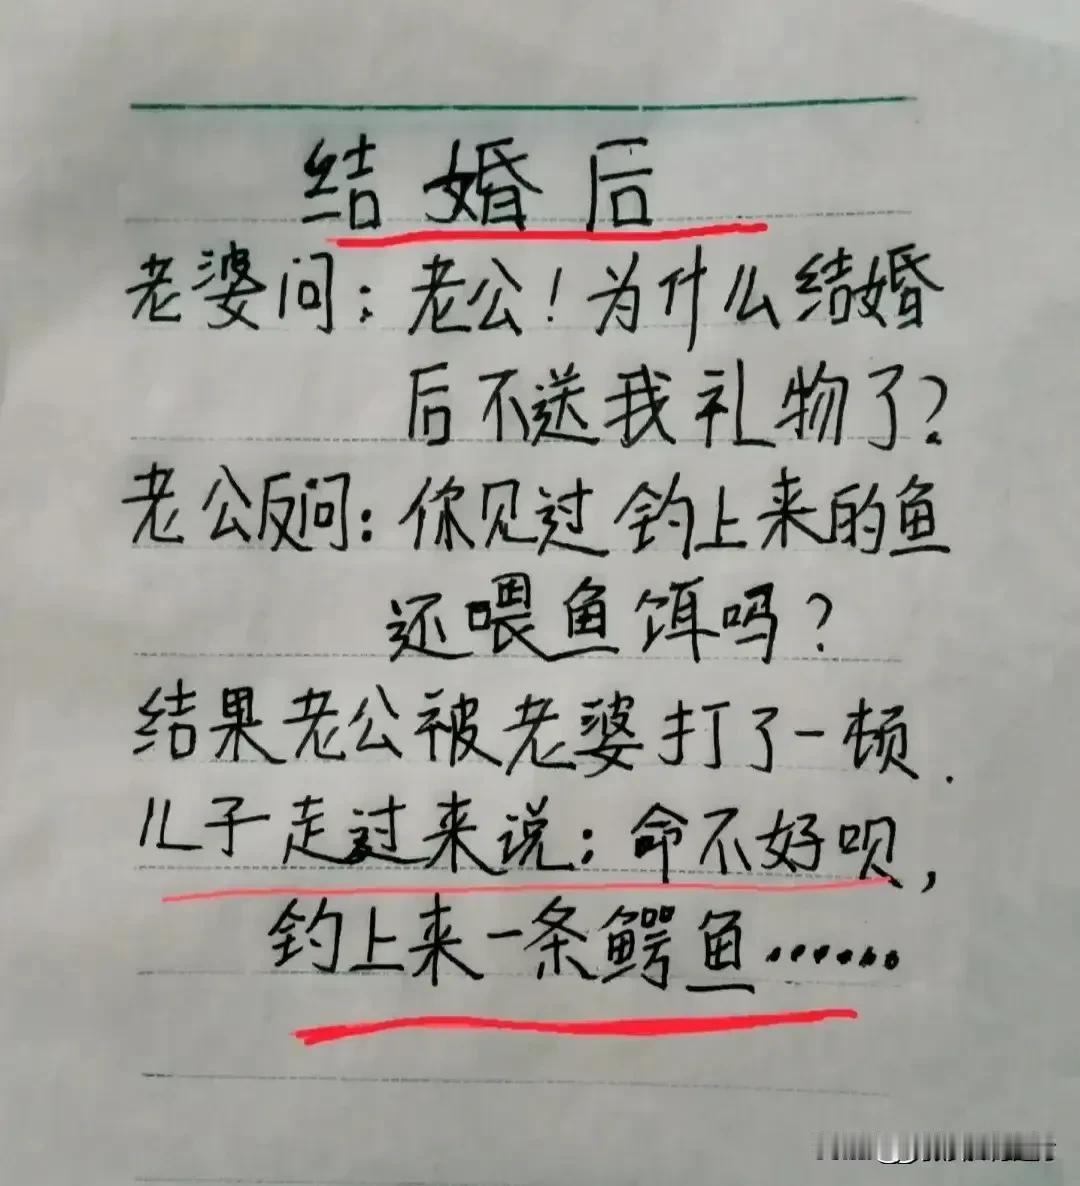 结婚后
老婆问：老公！为什么结婚
后不送我礼物了？
老公反问：你见过钓上来的鱼
还喂鱼饵吗？
结果老公被老婆打了一顿.
儿子走过来说：命不好呗，
钓上来一条鳄鱼……